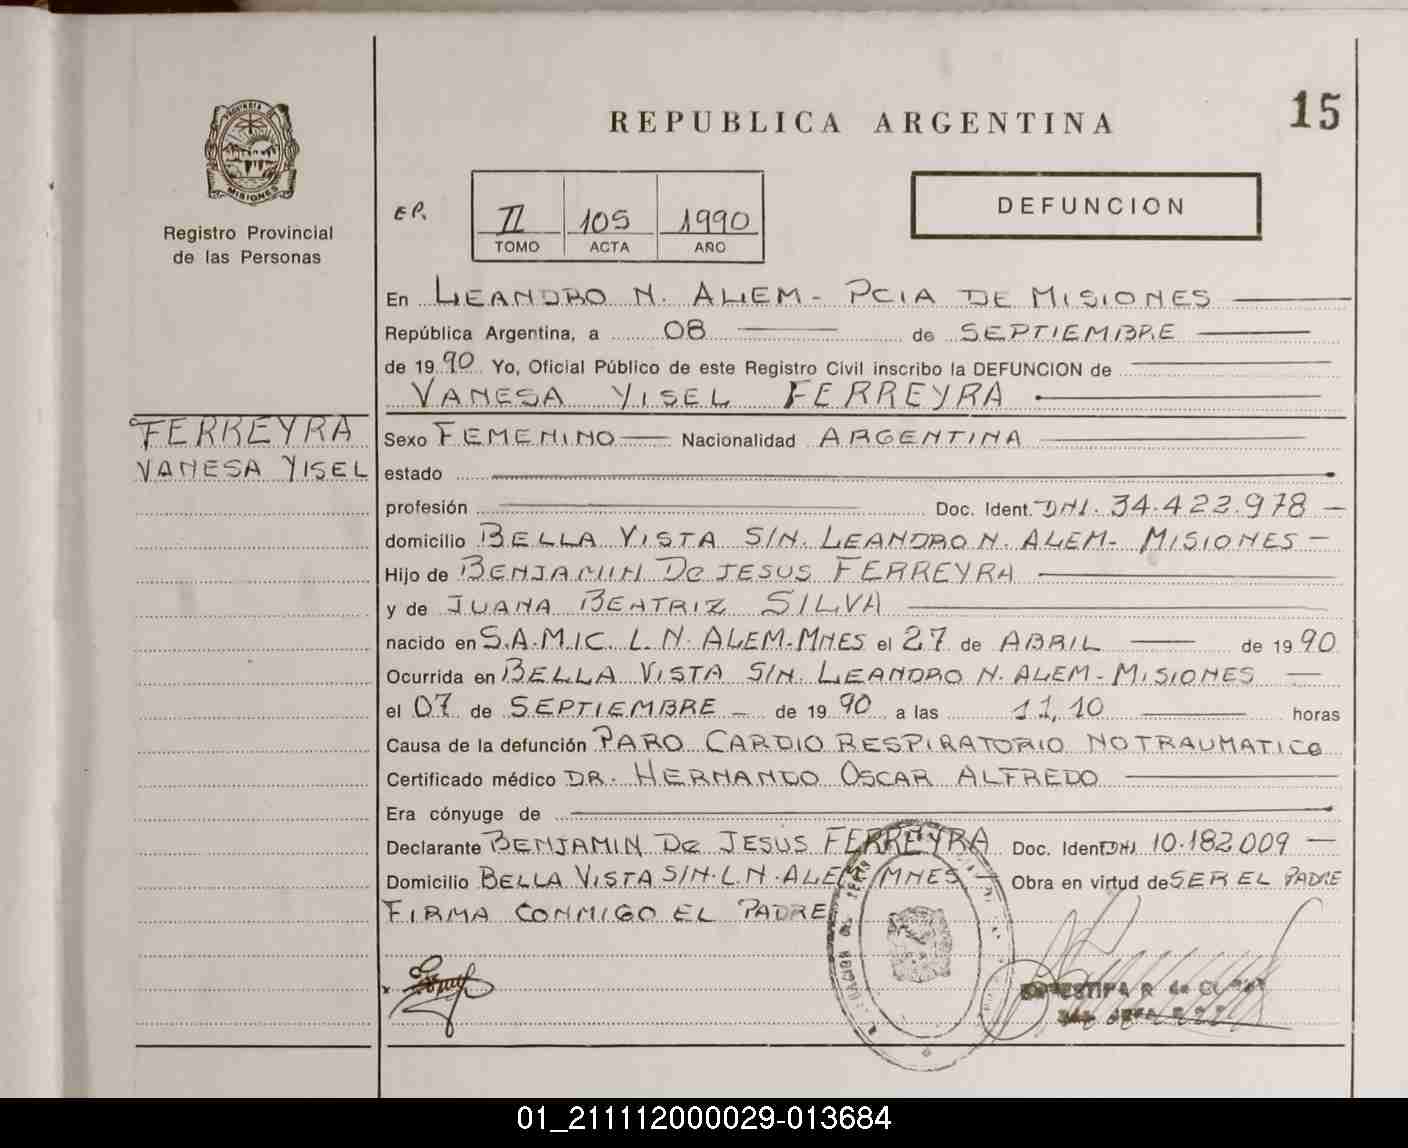 PROVINCIA
MISIONES
Registro Provincial
de las Personas
REPUBLICA ARGENTINA
15
EP.
II 105 1990
TOMO ACTA AÑO
DEFUNCION
En LEANDRO N. ALEM - PCIA DE MISIONES
República Argentina, a 08 de SEPTIEMBRE
de 1990 Yo, Oficial Público de este Registro Civil inscribo la DEFUNCION de
VANESA YISEL FERREYRA
FERREYRA
VANESA YISEL
Sexo FEMENINO Nacionalidad ARGENTINA
estado
profesión Doc. Ident. DNI. 34.423.978
domicilio BELLA VISTA S/N. LEANDRO N. ALEM - MISIONES
Hijo de BENJAMIN De JESUS FERREYRA
y de JUANA BEATRIZ SILVA
nacido en S.A.M.I.C. L. N. ALEM-MNES el 27 de ABRIL de 1990
Ocurrida en BELLA VISTA S/N. LEANDRO N. ALEM - MISIONES
el 07 de SEPTIEMBRE de 1990 a las 11,10 horas
Causa de la defunción PARO CARDIO RESPIRATORIO NO TRAUMATICO
Certificado médico DR. HERNANDO OSCAR ALFREDO
Era cónyuge de
Declarante BENJAMIN De JESUS FERREYRA Doc. Ident DNI 10.182.009
Domicilio BELLA VISTA S/N. L. N. ALEM MNES Obra en virtud de SER EL PADRE
FIRMA CONMIGO EL PADRE
01_211112000029-013684